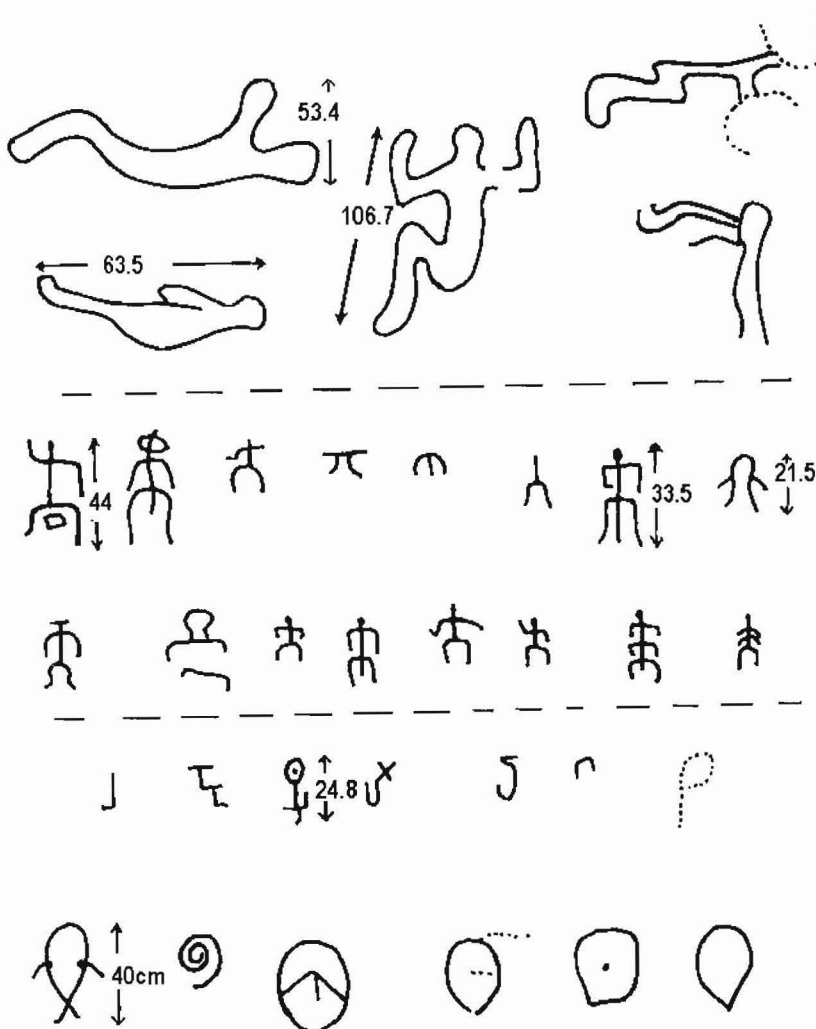 53.4
106.7
63.5
44
33.5
21.5
24.8
40cm